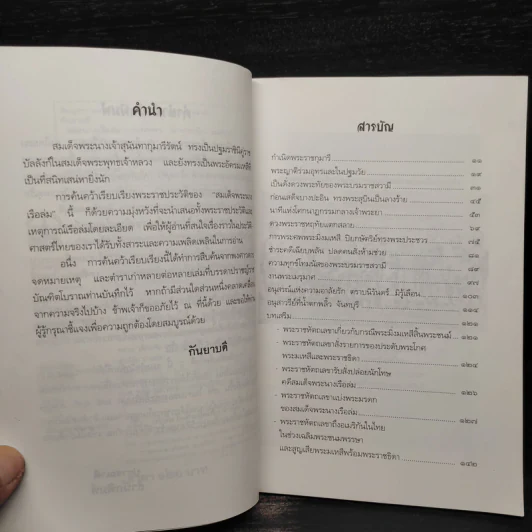 คำนำ
สมเด็จพระนางเจ้าสุนันทากุมารีรัตน์ ทรงเป็นปฐมราชินีคู่ราช
บัลลังก์ในสมเด็จพระพุทธเจ้าหลวง และยังทรงเป็นพระอัครมเหสี
เป็นที่สนิทเสน่หายิ่งนัก
การค้นคว้าเรียบเรียงพระราชประวัติของ "สมเด็จพระนาง
เรือล่ม" นี้ ก็ด้วยความมุ่งหวังที่จะนำเสนอทั้งพระราชประวัติและ
เหตุการณ์เรือล่มโดยละเอียด เพื่อให้ผู้อ่านที่สนใจเรื่องราวในประวัติ
ศาสตร์ไทยของเราได้รับทั้งสาระและความเพลิดเพลินในการอ่าน
อนึ่ง การค้นคว้าเรียบเรียงนี้ได้ทำการสืบค้นจากพงศาวดาร
จดหมายเหตุ และตำราเก่าหลายต่อหลายเล่มที่บรรดาปราชญ์
บัณฑิตโบราณท่านบันทึกไว้ หากถ้ามีส่วนใดส่วนหนึ่งคลาดเคลื่อน
จากความจริงไปบ้าง ข้าพเจ้าก็ขออภัยไว้ ณ ที่นี้ด้วย และขอให้ท่าน
ผู้รู้กรุณาชี้แจงเพื่อความถูกต้องโดยสมบูรณ์ด้วย
กันยาบดี
สารบัญ
กำเนิดพระราชกุมารี ๑๑
พระญาติร่วมอุทรและในปฐมวัย ๑๙
เป็นดั่งดวงหระทัยของพระบรมราชสวามี ๓๑
ก่อนเสด็จบางปะอิน ทรงพระสุบินเป็นลางร้าย ๔๕
นาทีแห่งโศกนาฏกรรมกลางเจ้าพระยา ๕๓
ดวงพระราชหฤทัยแตกสลาย ๖๙
การพระศพพระมิ่งมเหสี ปิยกษัตริย์ทรงพระประชวร ๗๕
ชำระคดีเฉียบพลัน ปลดคนสั่งห้ามช่วย ๘๓
ความทุกข์โทมนัสของพระบรมราชสวามี ๘๙
งานพระเมรุมาศ ๙๗
อนุสรณ์แห่งความอาลัยรัก ตราบนิรันดร์...มิรู้เลือน ๑๐๓
อนุสาวรีย์ที่น้ำตกพลิ้ว จันทบุรี ๑๑๑
บทเสริม ๑๒๑
- พระราชหัตถเลขาเกี่ยวกับกรณีพระมิ่งมเหสีสิ้นพระชนม์ ๑๒๑
- พระราชหัตถเลขาสั่งราชการของประดับพระโกศ
พระมเหสีและพระราชธิดา ๑๒๔
- พระราชหัตถเลขารับสั่งปล่อยนักโทษ
คดีสมเด็จพระนางเรือล่ม
- พระราชหัตถเลขาแบ่งพระมรดก
ของสมเด็จพระนางเรือล่ม ๑๒๗
- พระราชหัตถเลขาถึงอเมริกันในไทย
ในช่วงเฉลิมพระชนมพรรษา
และสูญเสียพระมเหสีพร้อมพระราชธิดา ๑๔๒